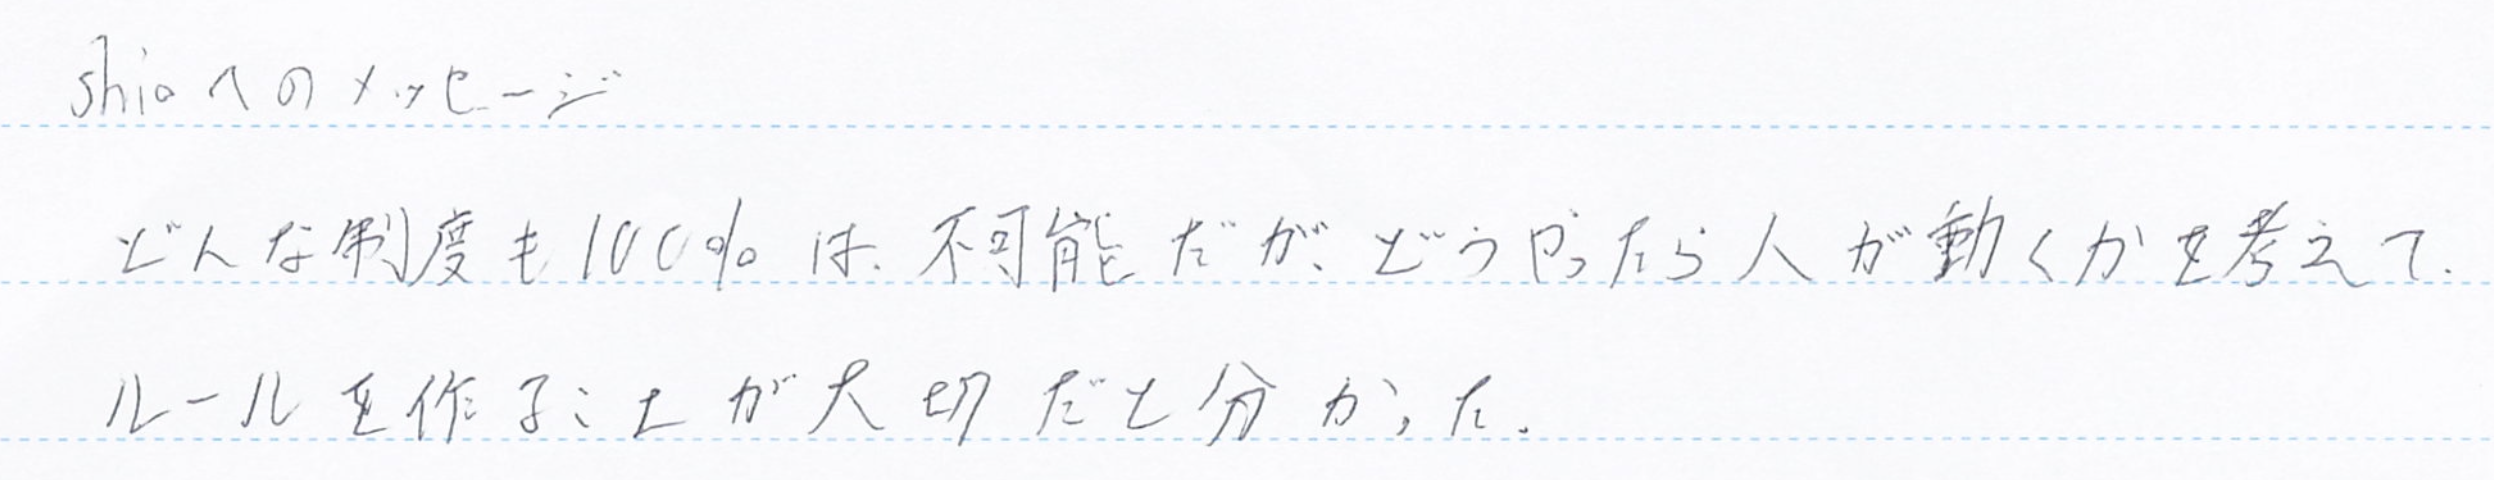 shioへのメッセージ
どんな制度も100%は、不可能だが、どうやったら人が動くかを考えて、
ルールを作ることが大切だと分かった。